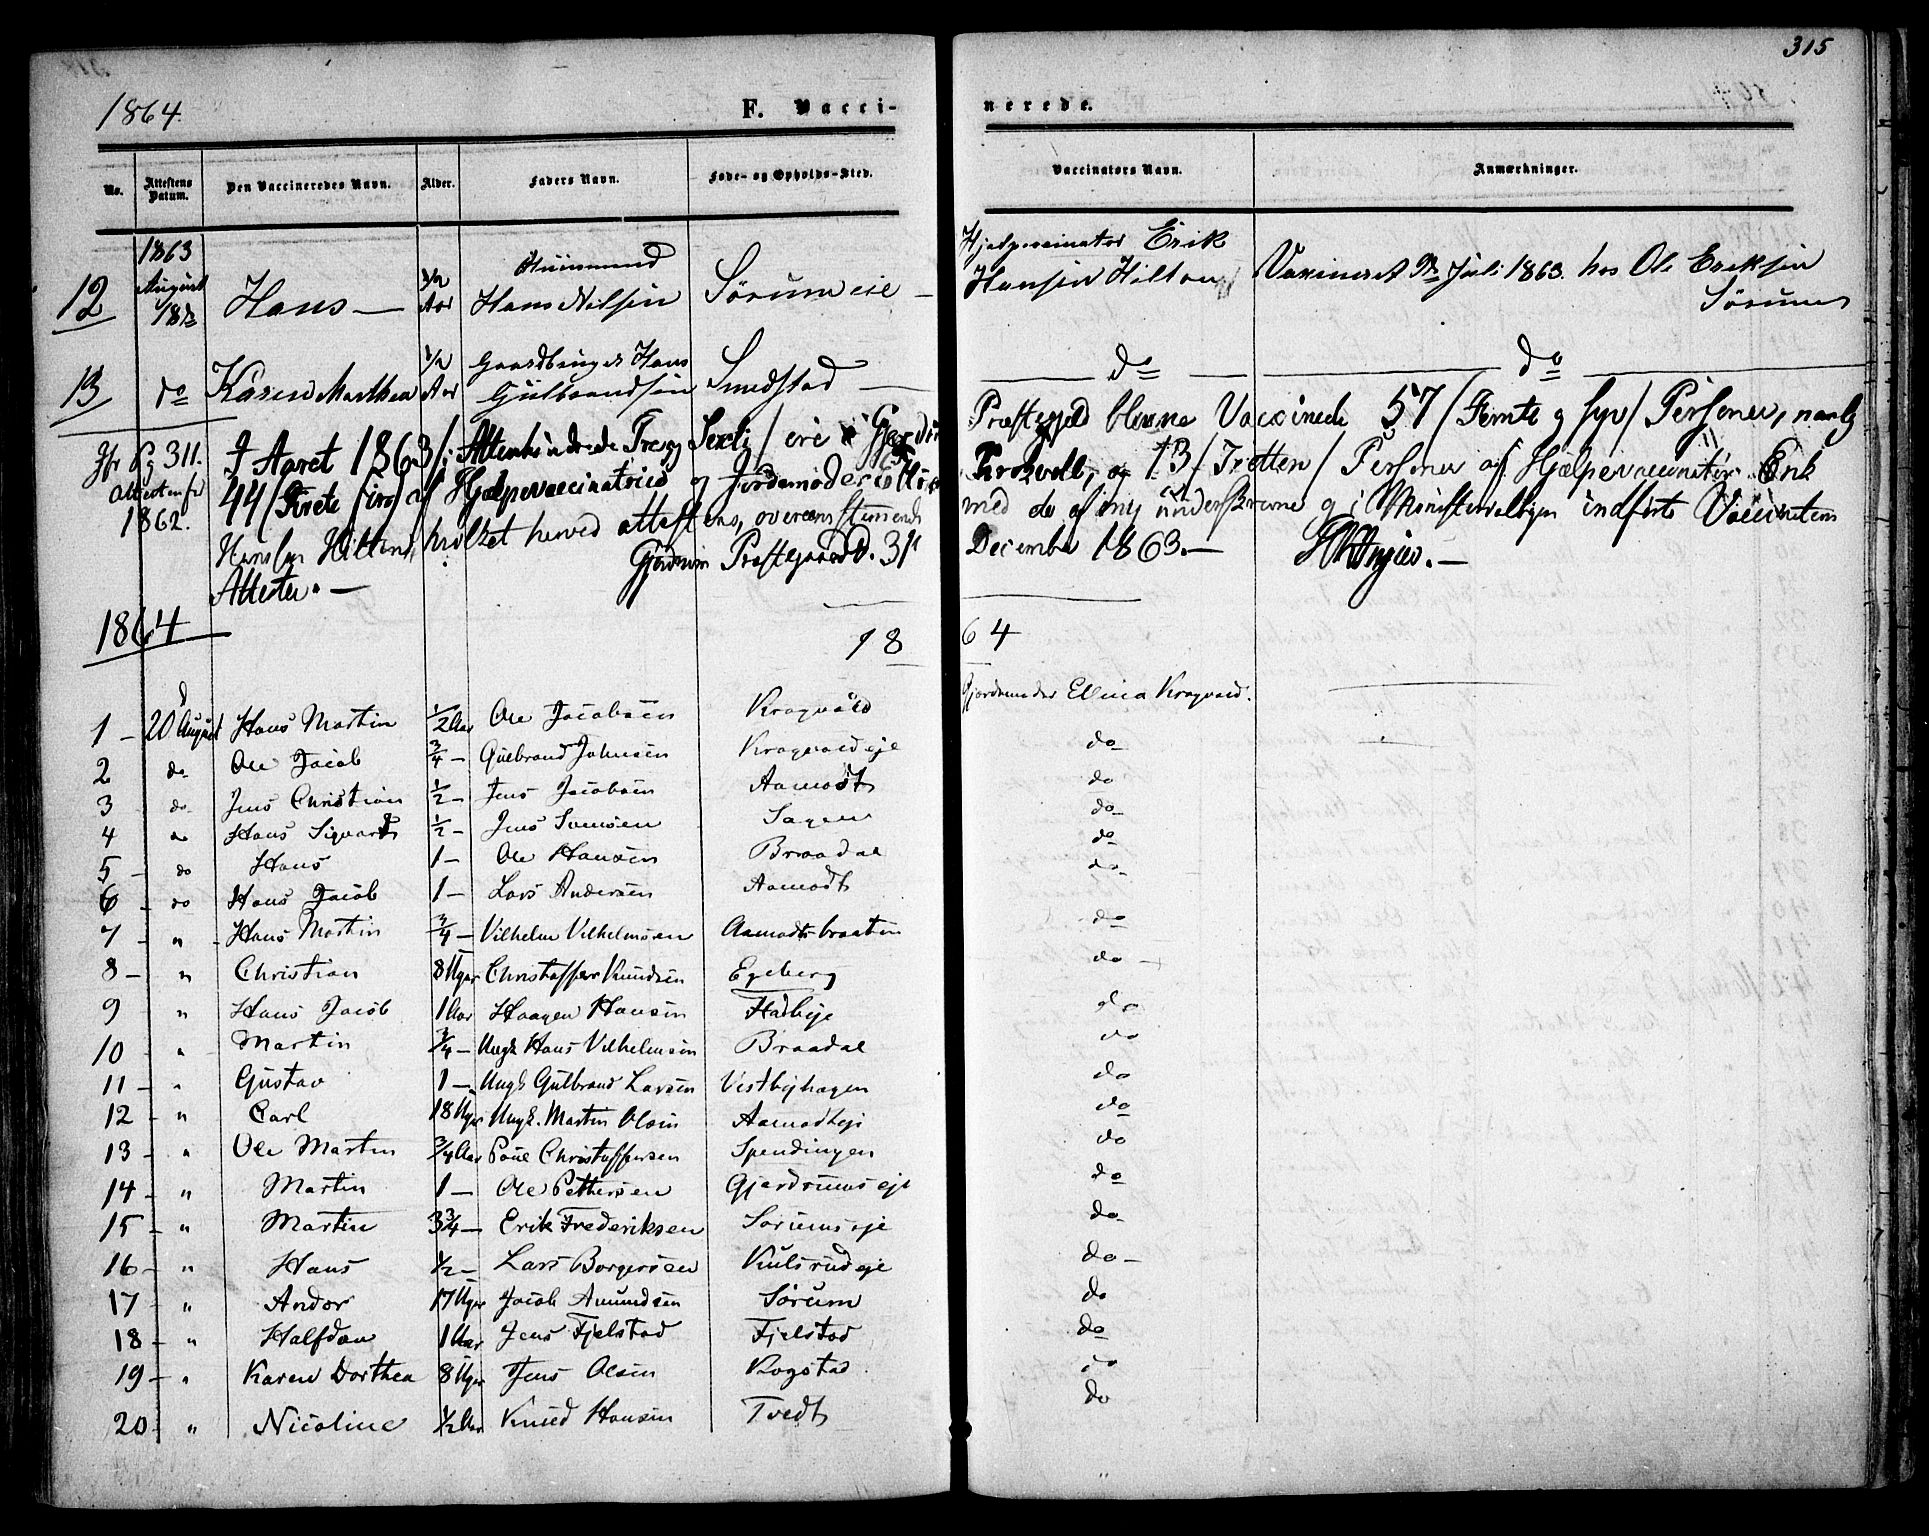 315
1864.
F. Vaccinerede.
No. Attestens Datum. Den Vaccineredes Navn. Alder. Faders Navn. Føde- og Opholds-Sted. Vaccinators Navn. Anmærkninger.
12 1863 August 18de Hans — 1/2 Aar Huusmand Hans Nilsen Sørumeie — Hjelpevaccinator Erik Hansen Hilton Vaxineret Juli 1863. hos Ole Eriksen Sørum
13 do Karen Marthea 1/2 Aar Gaardbruger Hans Gulbrandsen Smedstad — do do
Jfr Pg 311. Attesten for 1862.
I Aaret 1863 / Attenhundrede Treog Sexti / ere i Gjerdrum Præstegjeld blevne Vaccinerede 57 / Femti og syv / Personer, nemlig
44 / Firete fire / af Hjælpevaccinatrice og Jordemoder Ellina Krokvold, og 13 / Tretten / Personer af Hjælpevaccinatør Erik
Hansen Hilton, hvilket herved attesteres, overensstemmende med de af mig underskrevne og i Ministerialbogen indførte Vaccinations
Attester. — Gjerdrum Præstegaard D. 31 December 1863. —
1864 1864
1 — 20 August Hans Martin 1/2 Aar Ole Jacobsen Kragvold Gjordemoder Ellina Kragvold.
2 do Ole Jacob 3/4 — Gulbrand Johnsen Kragvoldeje do
3 do Jens Christian 1/2 — Jens Jacobsen Aamodt do
4 do Hans Sigvart 1/2 — Jens Samsen Sagen do
5 — do Hans 1 — Ole Hansen Braadal do
6 — do Hans Jacob 1 — Lars Andersen Aamodt do
7 — " — Hans Martin 3/4 — Vilhelm Vilhelmsen Aamodtbraaten do
8 — " Christian 8 Uger Christoffer Knudsen Egeberg do —
9 " Hans Jacob 1 Aar Haagen Hansen Hadleje do
10 — " Martin 3/4 — Ungk Hans Vilhelmsen Braadal do
11 — " Gustav 1 — Ungk Gulbrand Larsen Vestbyhagen do
12 — " Carl 18 Uger Ungk. Martin Olsen Aamodteje do
13 — " Ole Martin 3/4 Aar Poul Christoffersen Spendingen do
14 — " Martin 1 — Ole Pettersen Gjerdrumseje do
15 — " Martin 3 3/4 — Erik Frederiksen Sørumseje do
16 — " Hans 1/2 — Lars Borgersen Kulsrudeje do —
17 — " Andor 17 Uger Jacob Amundsen Sørum do
18 — " Halfdan 1 Aar Jens Fjelstad Fjelstad do
19 — " Karen Dorthea 8 Uger Jens Olsen Rogstad do
20 — " Nicoline 1/2 Aar Knud Hansen Tvedt do